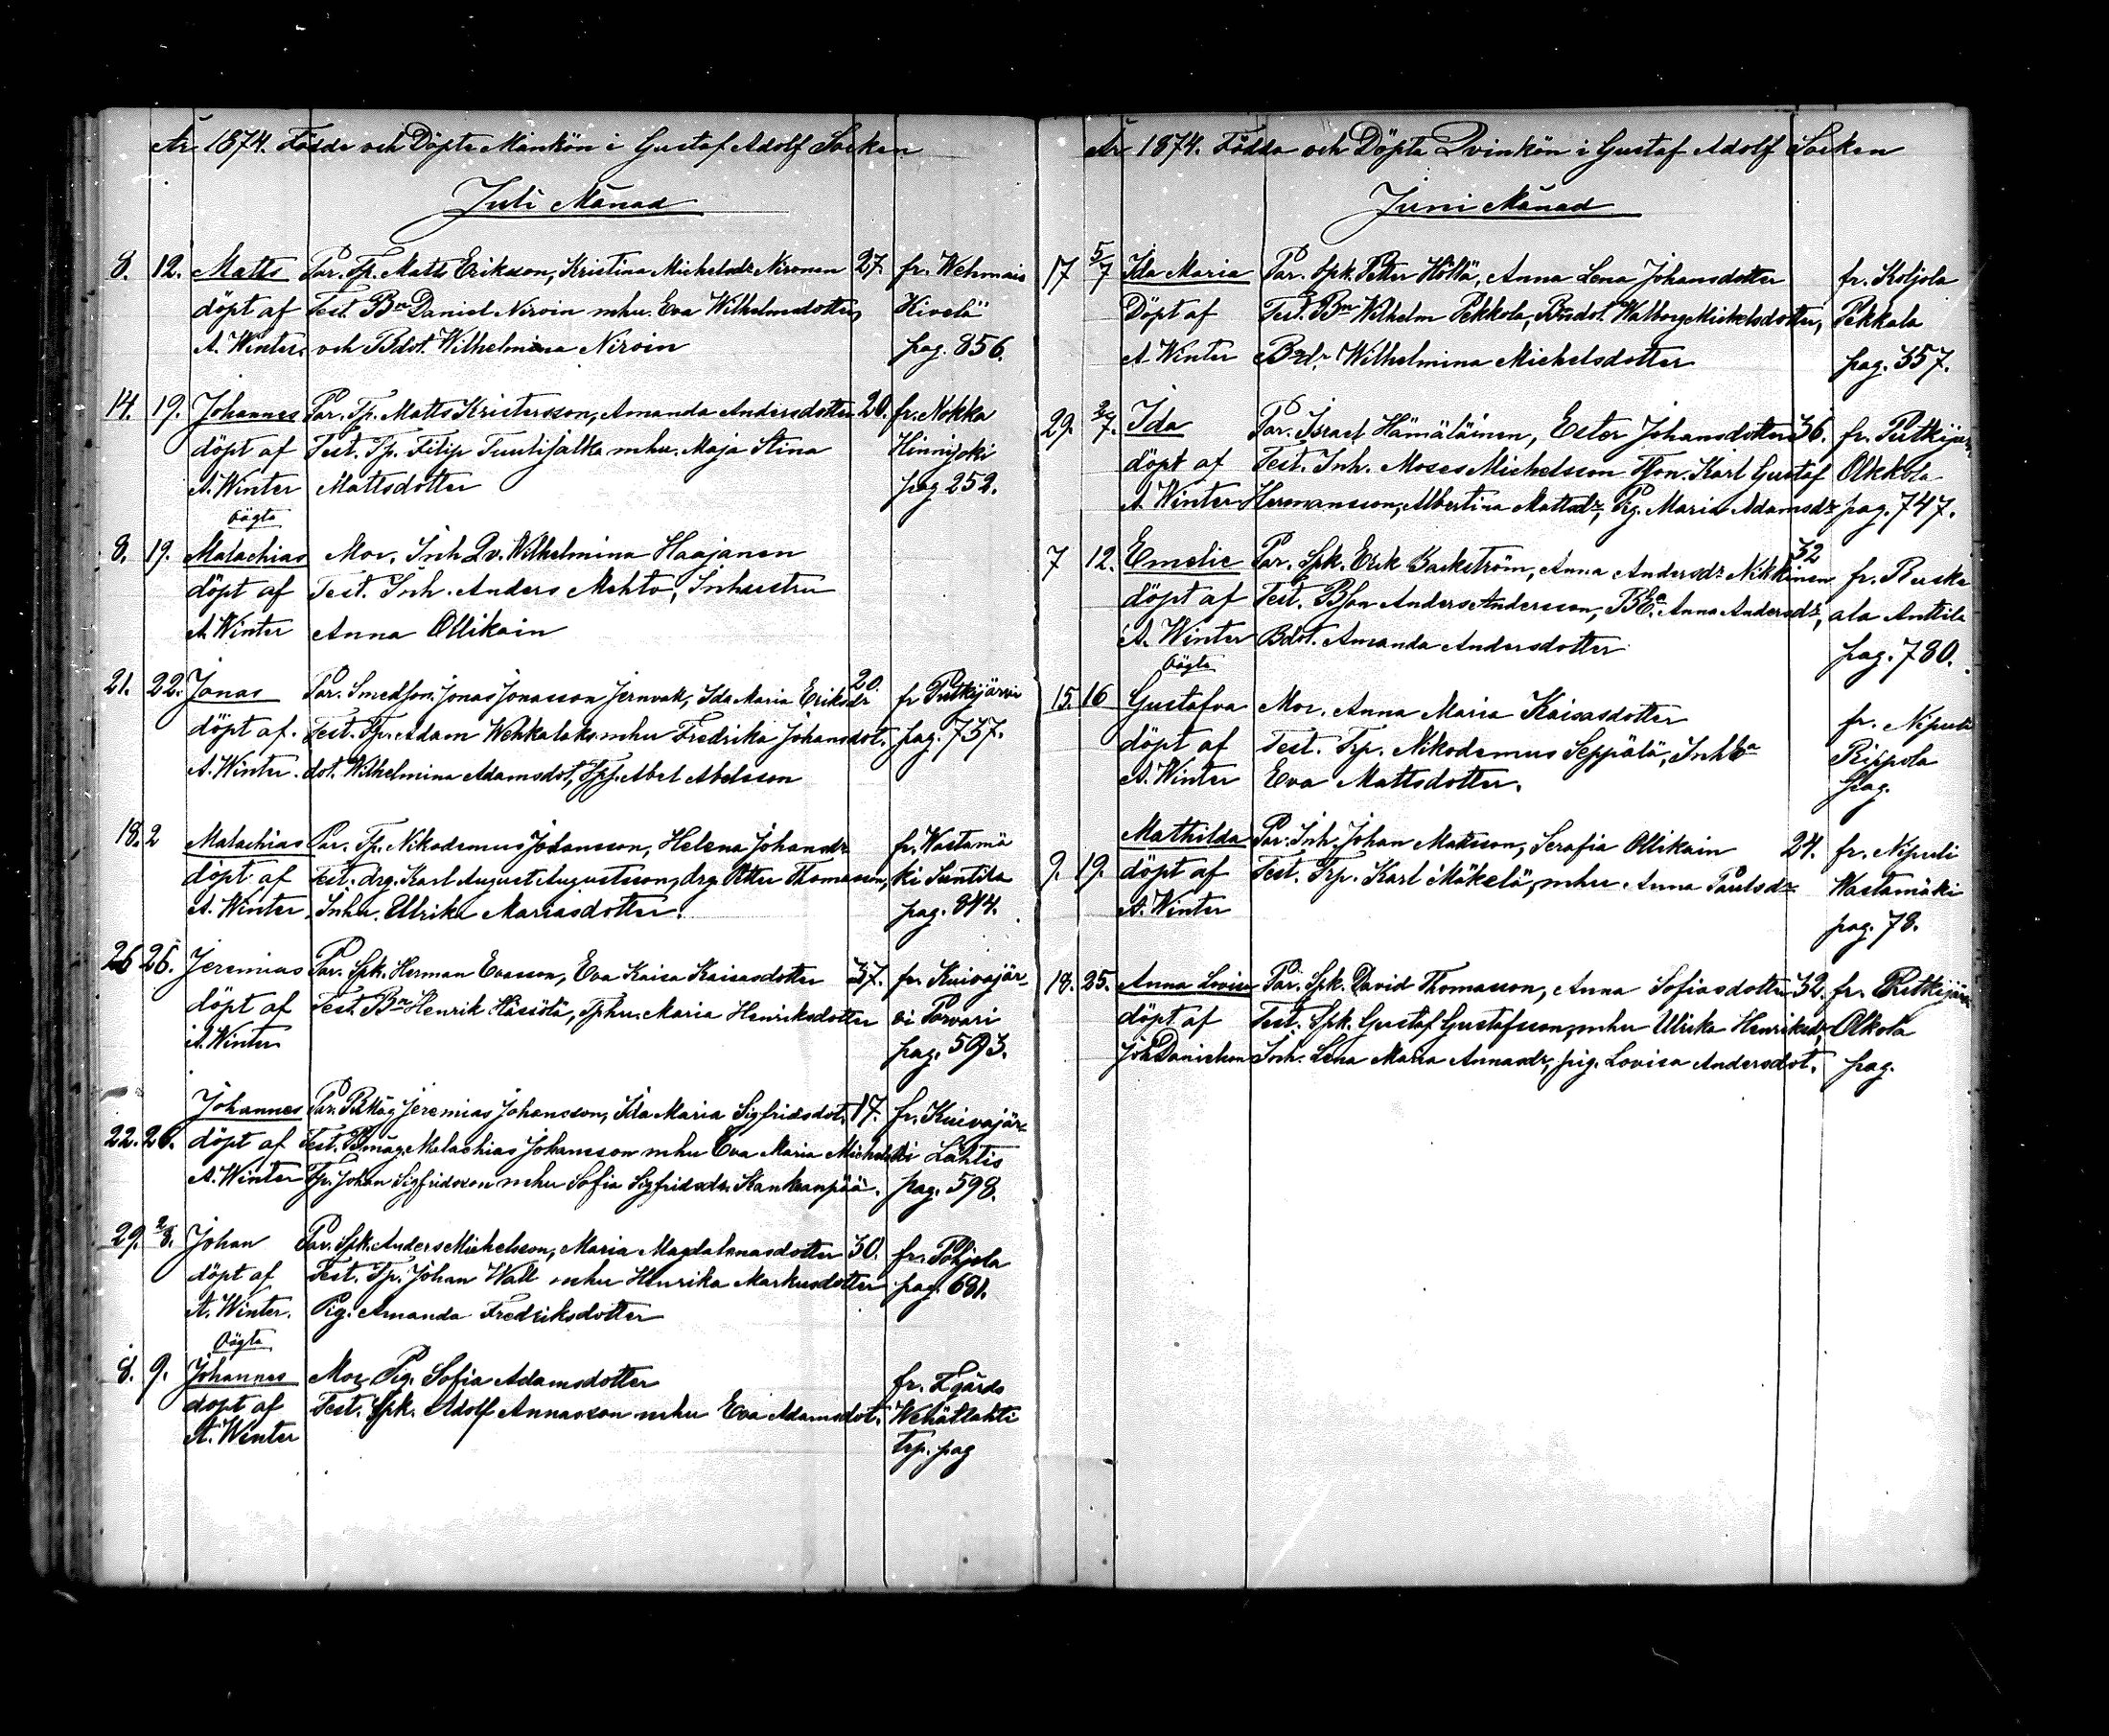 År 1874. Födde och Döpte Mankön i Gustaf Adolf Socken
Juli Månad
8. 12. Matts Par. Tp. Matts Eriksson, Kristina Michelsdr Nironen 27. fr. Wehmais
döpt af Test. Bn Daniel Niroin mhu. Eva Wilhelmsdotter, Hivelä
A. Winter. och Bdot. Wilhelmina Niroin pag. 856.
14. 19. Johannes Par. Tp. Matts Kristersson, Amanda Andersdotter 20. fr. Nokka
döpt af Test. Tp. Filip Tuulijalka mhu. Maja Stina Hinnijoki
A. Winter Mattsdotter pag 252.
Oägta
8. 19. Malachias Mor. Inh Qv. Wilhelmina Haajanen
döpt af Test. Inh. Anders Mehto, Inhustru
A. Winter Anna Ollikain
21. 22. Jonas Par. Smedson. Jonas Jonasson Jernvak, Ida Maria Eriksdr 20. fr Putkijärvi
döpt af. Test. Tp. Adam Wehkalaks mhu Fredrika Johansdot. pag. 757.
A. Winter. dot. Wilhelmina Adamsdot, Abel Abelsson
18. 2 Malachias Par. Tp. Nikodemus Johansson, Helena Johansdr fr. Wastamä
döpt af Test. drg. Karl August Augustsson, drg. Otto Thomasson, ki Suntila
A. Winter. Inhu. Ullrika Mariasdotter. pag. 844.
26 26. Jeremias Par. Spk. Herman Evasson, Eva Kaisa Kaisasdotter 37. fr. Kuivajär
döpt af Test. Bn Henrik Hässölä, Tphu. Maria Henriksdotter vi Porvari
A. Winter pag. 593.
Johannes Par. Bmåg Jeremias Johansson, Ida Maria Sigfridsdot. 17. fr. Kuivajär
22. 26. döpt af Test. Bmåg. Malachias Johansson mhu Eva Maria Lahtis
A. Winter Tp. Johan Sigfridsson mhu Sofia Sigfridsdr. Kankanpää. pag. 598.
29. 2/8. Johan Par. Spk. Anders Michelsson, Maria Magdalenasdotter 30. fr. Pohjola
döpt af Test. Tp. Johan Wall mhu Henrika Markusdotter pag. 681.
A. Winter. Pig. Amanda Fredriksdotter
Oägta
8. 9. Johannes Mor Pig. Sofia Adamsdotter fr. Lgårds
döpt af Test. Spk. Adolf Annasson mhu Eva Adamsdot. Wehätlahti
A. Winter Trp. pag
År 1874. Födda och Döpta Qvinkön i Gustaf Adolf Socken
Juni Månad
17 5/7 Ida Maria Par. Spk. Petter Höllä, Anna Lena Johansdotter fr. Koljola
Döpt af Test. Bn Wilhelm Pekkola, Bndot. Walborg Mickelsdotter, Pekkala
A. Winter Bndr. Wilhelmina Michelsdotter pag. 357.
29. 2/7. Ida Par. Israel Hämäläinen, Ester Johansdotter 36. fr. Putkijär
döpt af Test. Inh. Moses Michelsson Tson. Karl Gustaf Olkkola
A. Winter Hermansson, Albertina Mattsdr, Pig. Maria Adamsdr pag. 747.
7 12. Emelie Par. Spk. Erik Backström, Anna Andersdr Nikkinen 32 fr. Ruska
döpt af Test. Bson Anders Andersson, Anna Andersdr, ala Anttila
A. Winter Bdot. Amanda Andersdotter pag. 780.
Oägta
15. 16 Gustafva Mor. Anna Maria Kaisasdotter fr. Nipuli
döpt af Test. Trp. Nikodemus Seppälä, Inhka Rippola
A. Winter Eva Mattsdotter. pag.
Mathilda Par. Inh. Johan Matsson, Serafia Ollikain 24. fr. Nipuli
9. 19. döpt af Test. Trp. Karl Mäkelä, mhu. Anna Paulsdr Wastamäki
A. Winter pag. 78.
18. 25. Anna Lovisa Par. Spk. David Thomasson, Anna Sofiasdotter 32. fr. Putkijärvi
döpt af Test. Spk. Gustaf Gustafsson, mhu Ulrika Henriksdr, Olkola
Joh Danielson Inh. Lena Maria Annasdr, pig. Lovisa Andersdot. pag.